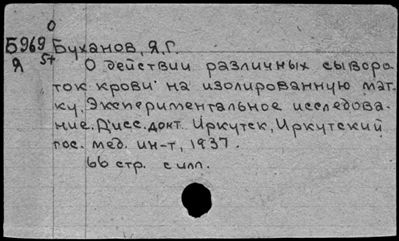 0
Б969 Буханов, Я.Г.
Я 5+
О действии различных сыворо-
ток крови на изолированную мат-
ку. Экспериментальное исследова-
ние. Дисс. докт. Иркутск, Иркутский
гос. мед. ин-т, 1937.
66 стр. с илл.